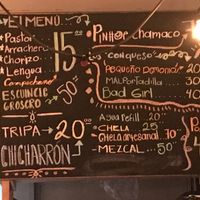 El MENÚ
*Pastor
*Arrachera
*Chorizo
*Lengua
*Campechano
15.00
ESCUINCLE
GROSERO
50.00
TRIPA 20.00
CHICHARRÓN
PINHOP chamaco
CON QUESO
PEQUEÑO Demonio 20
MALPORTADILLA 30
Bad Girl 40
Agua Refill 20
*CHELA 25
*Chela artesanal
-MEZCAL 50